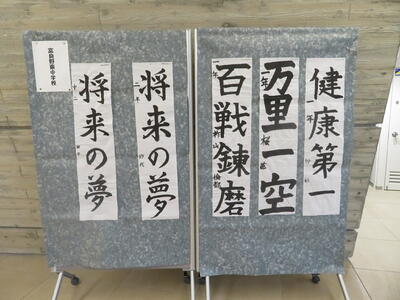 健康第一
万里一空
百戦錬磨
将来の夢
将来の夢
富良野東中学校